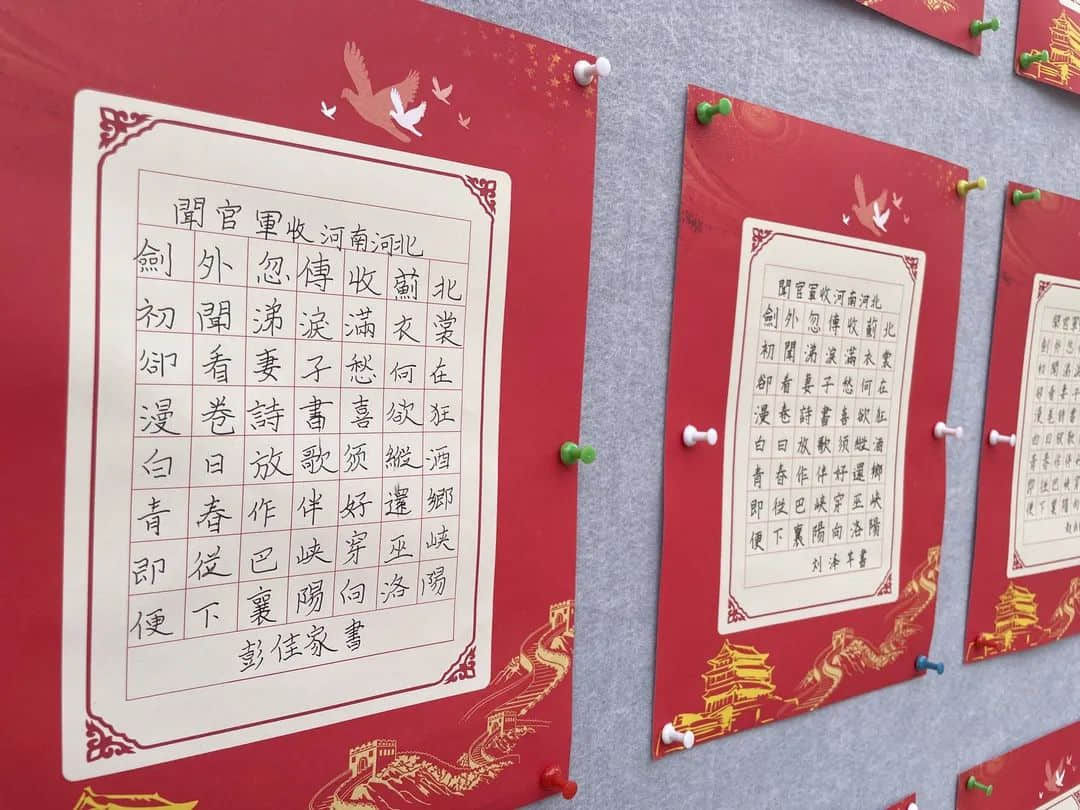 聞官軍收河南河北
劍外忽傳收薊北
初聞涕淚滿衣裳
卻看妻子愁何在
漫卷詩書喜欲狂
白日放歌须縱酒
青春作伴好還鄉
即從巴峽穿巫峽
便下襄陽向洛陽
彭佳家書
聞官軍收河南河北
劍外忽傳收薊北
初聞涕淚滿衣裳
卻看妻子愁何在
漫卷詩書喜欲狂
白日放歌须縱酒
青春作伴好還鄉
即從巴峽穿巫峽
便下襄陽向洛陽
刘泽芊書
聞官軍
劍外忽
初聞涕
卻看妻子
漫卷詩書
白日放歌
青春作伴
即從巴峽
便下襄陽向